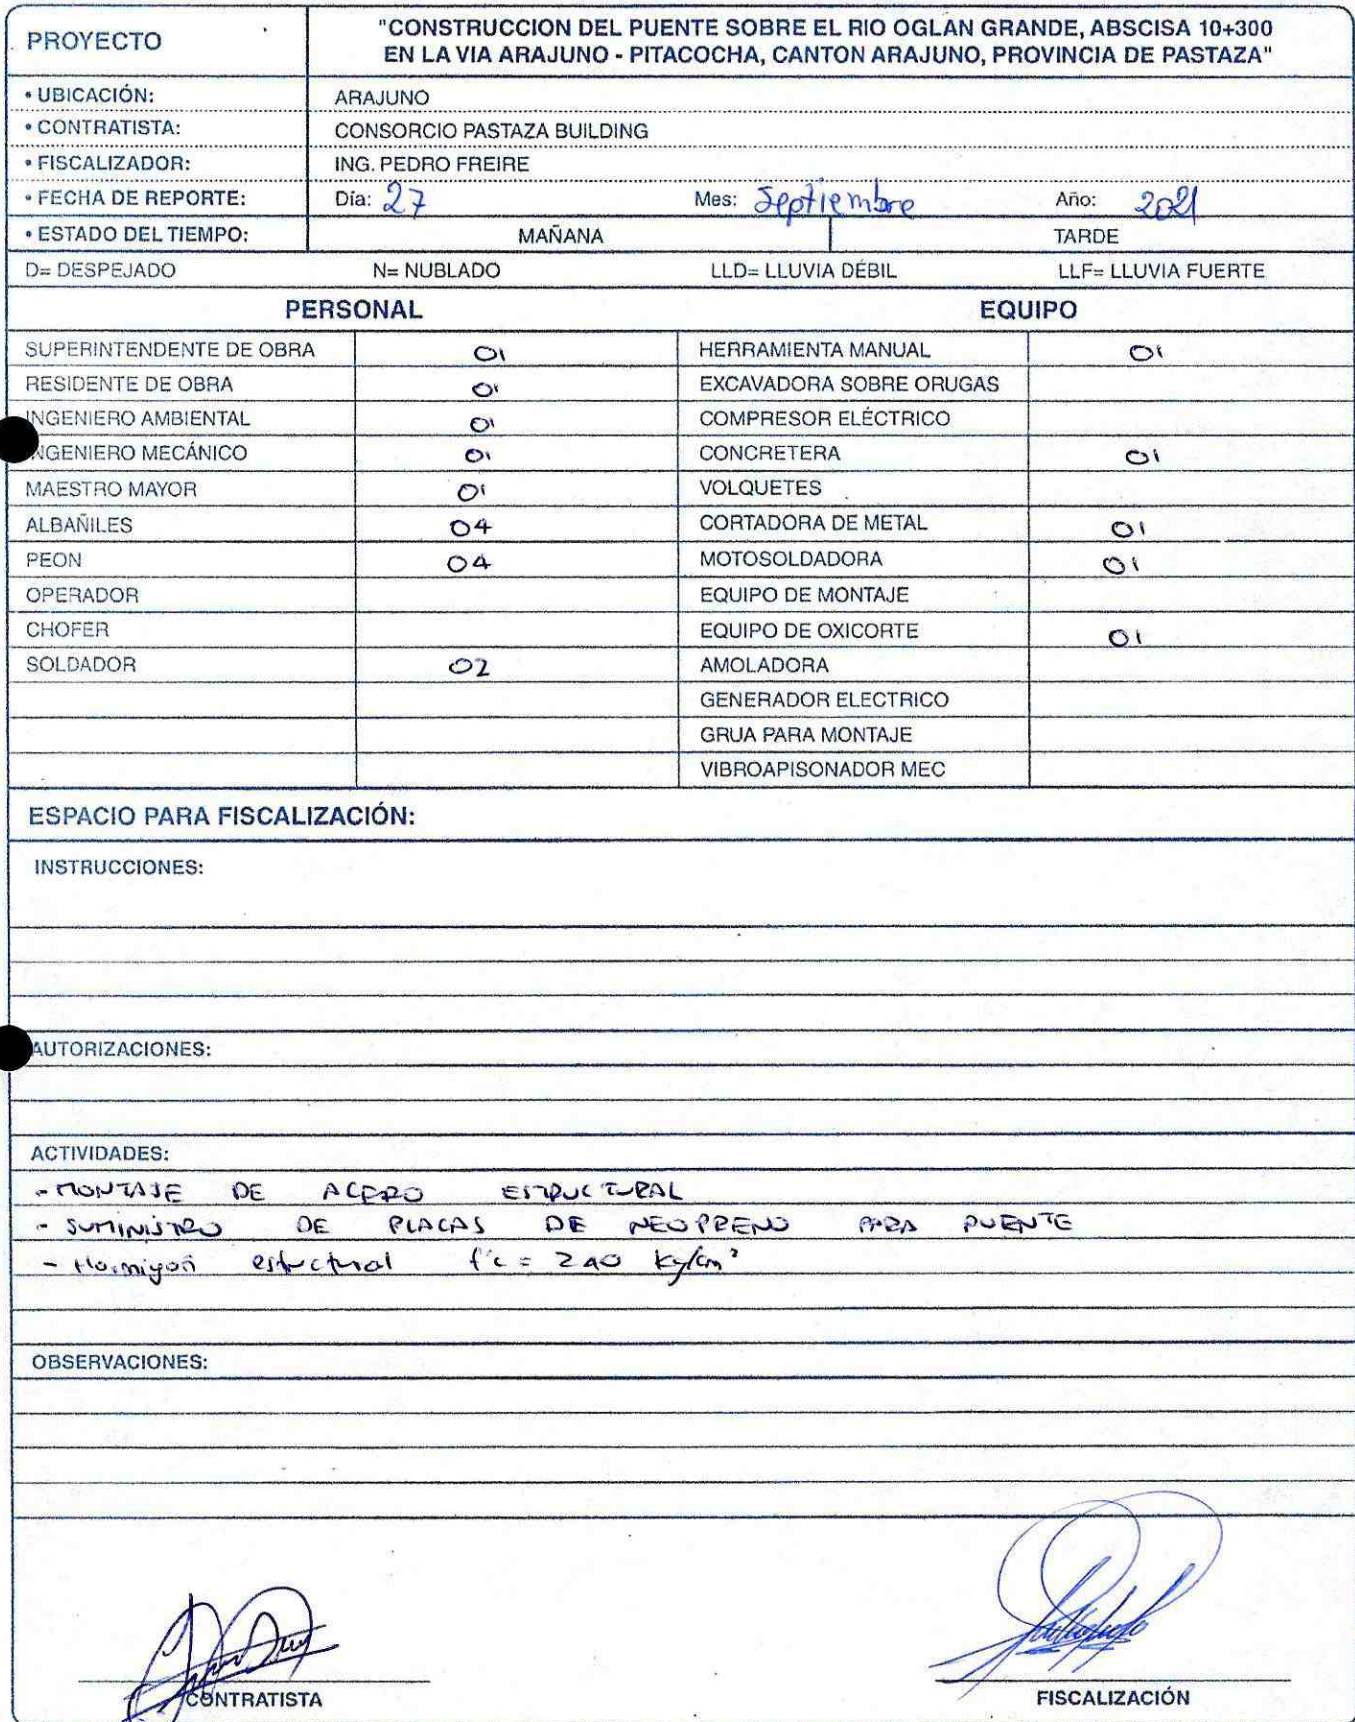 PROYECTO
"CONSTRUCCION DEL PUENTE SOBRE EL RIO OGLAN GRANDE, ABSCISA 10+300
EN LA VIA ARAJUNO - PITACOCHA, CANTON ARAJUNO, PROVINCIA DE PASTAZA"
• UBICACIÓN: ARAJUNO
• CONTRATISTA: CONSORCIO PASTAZA BUILDING
• FISCALIZADOR: ING. PEDRO FREIRE
• FECHA DE REPORTE: Día: 27 Mes: Septiembre Año: 2021
• ESTADO DEL TIEMPO: MAÑANA TARDE
D= DESPEJADO N= NUBLADO LLD= LLUVIA DÉBIL LLF= LLUVIA FUERTE
PERSONAL EQUIPO
SUPERINTENDENTE DE OBRA 01 HERRAMIENTA MANUAL 01
RESIDENTE DE OBRA 01 EXCAVADORA SOBRE ORUGAS
INGENIERO AMBIENTAL 01 COMPRESOR ELÉCTRICO
NGENIERO MECÁNICO 01 CONCRETERA 01
MAESTRO MAYOR 01 VOLQUETES
ALBAÑILES 04 CORTADORA DE METAL 01
PEON 04 MOTOSOLDADORA 01
OPERADOR EQUIPO DE MONTAJE
CHOFER EQUIPO DE OXICORTE 01
SOLDADOR 02 AMOLADORA
GENERADOR ELECTRICO
GRUA PARA MONTAJE
VIBROAPISONADOR MEC
ESPACIO PARA FISCALIZACIÓN:
INSTRUCCIONES:
AUTORIZACIONES:
ACTIVIDADES:
- MONTAJE DE ACERO ESTRUCTURAL
- SUMINISTRO DE PLACAS DE NEOPRENO PARA PUENTE
- Hormigon estructural f'c = 240 kg/cm²
OBSERVACIONES:
CONTRATISTA FISCALIZACIÓN